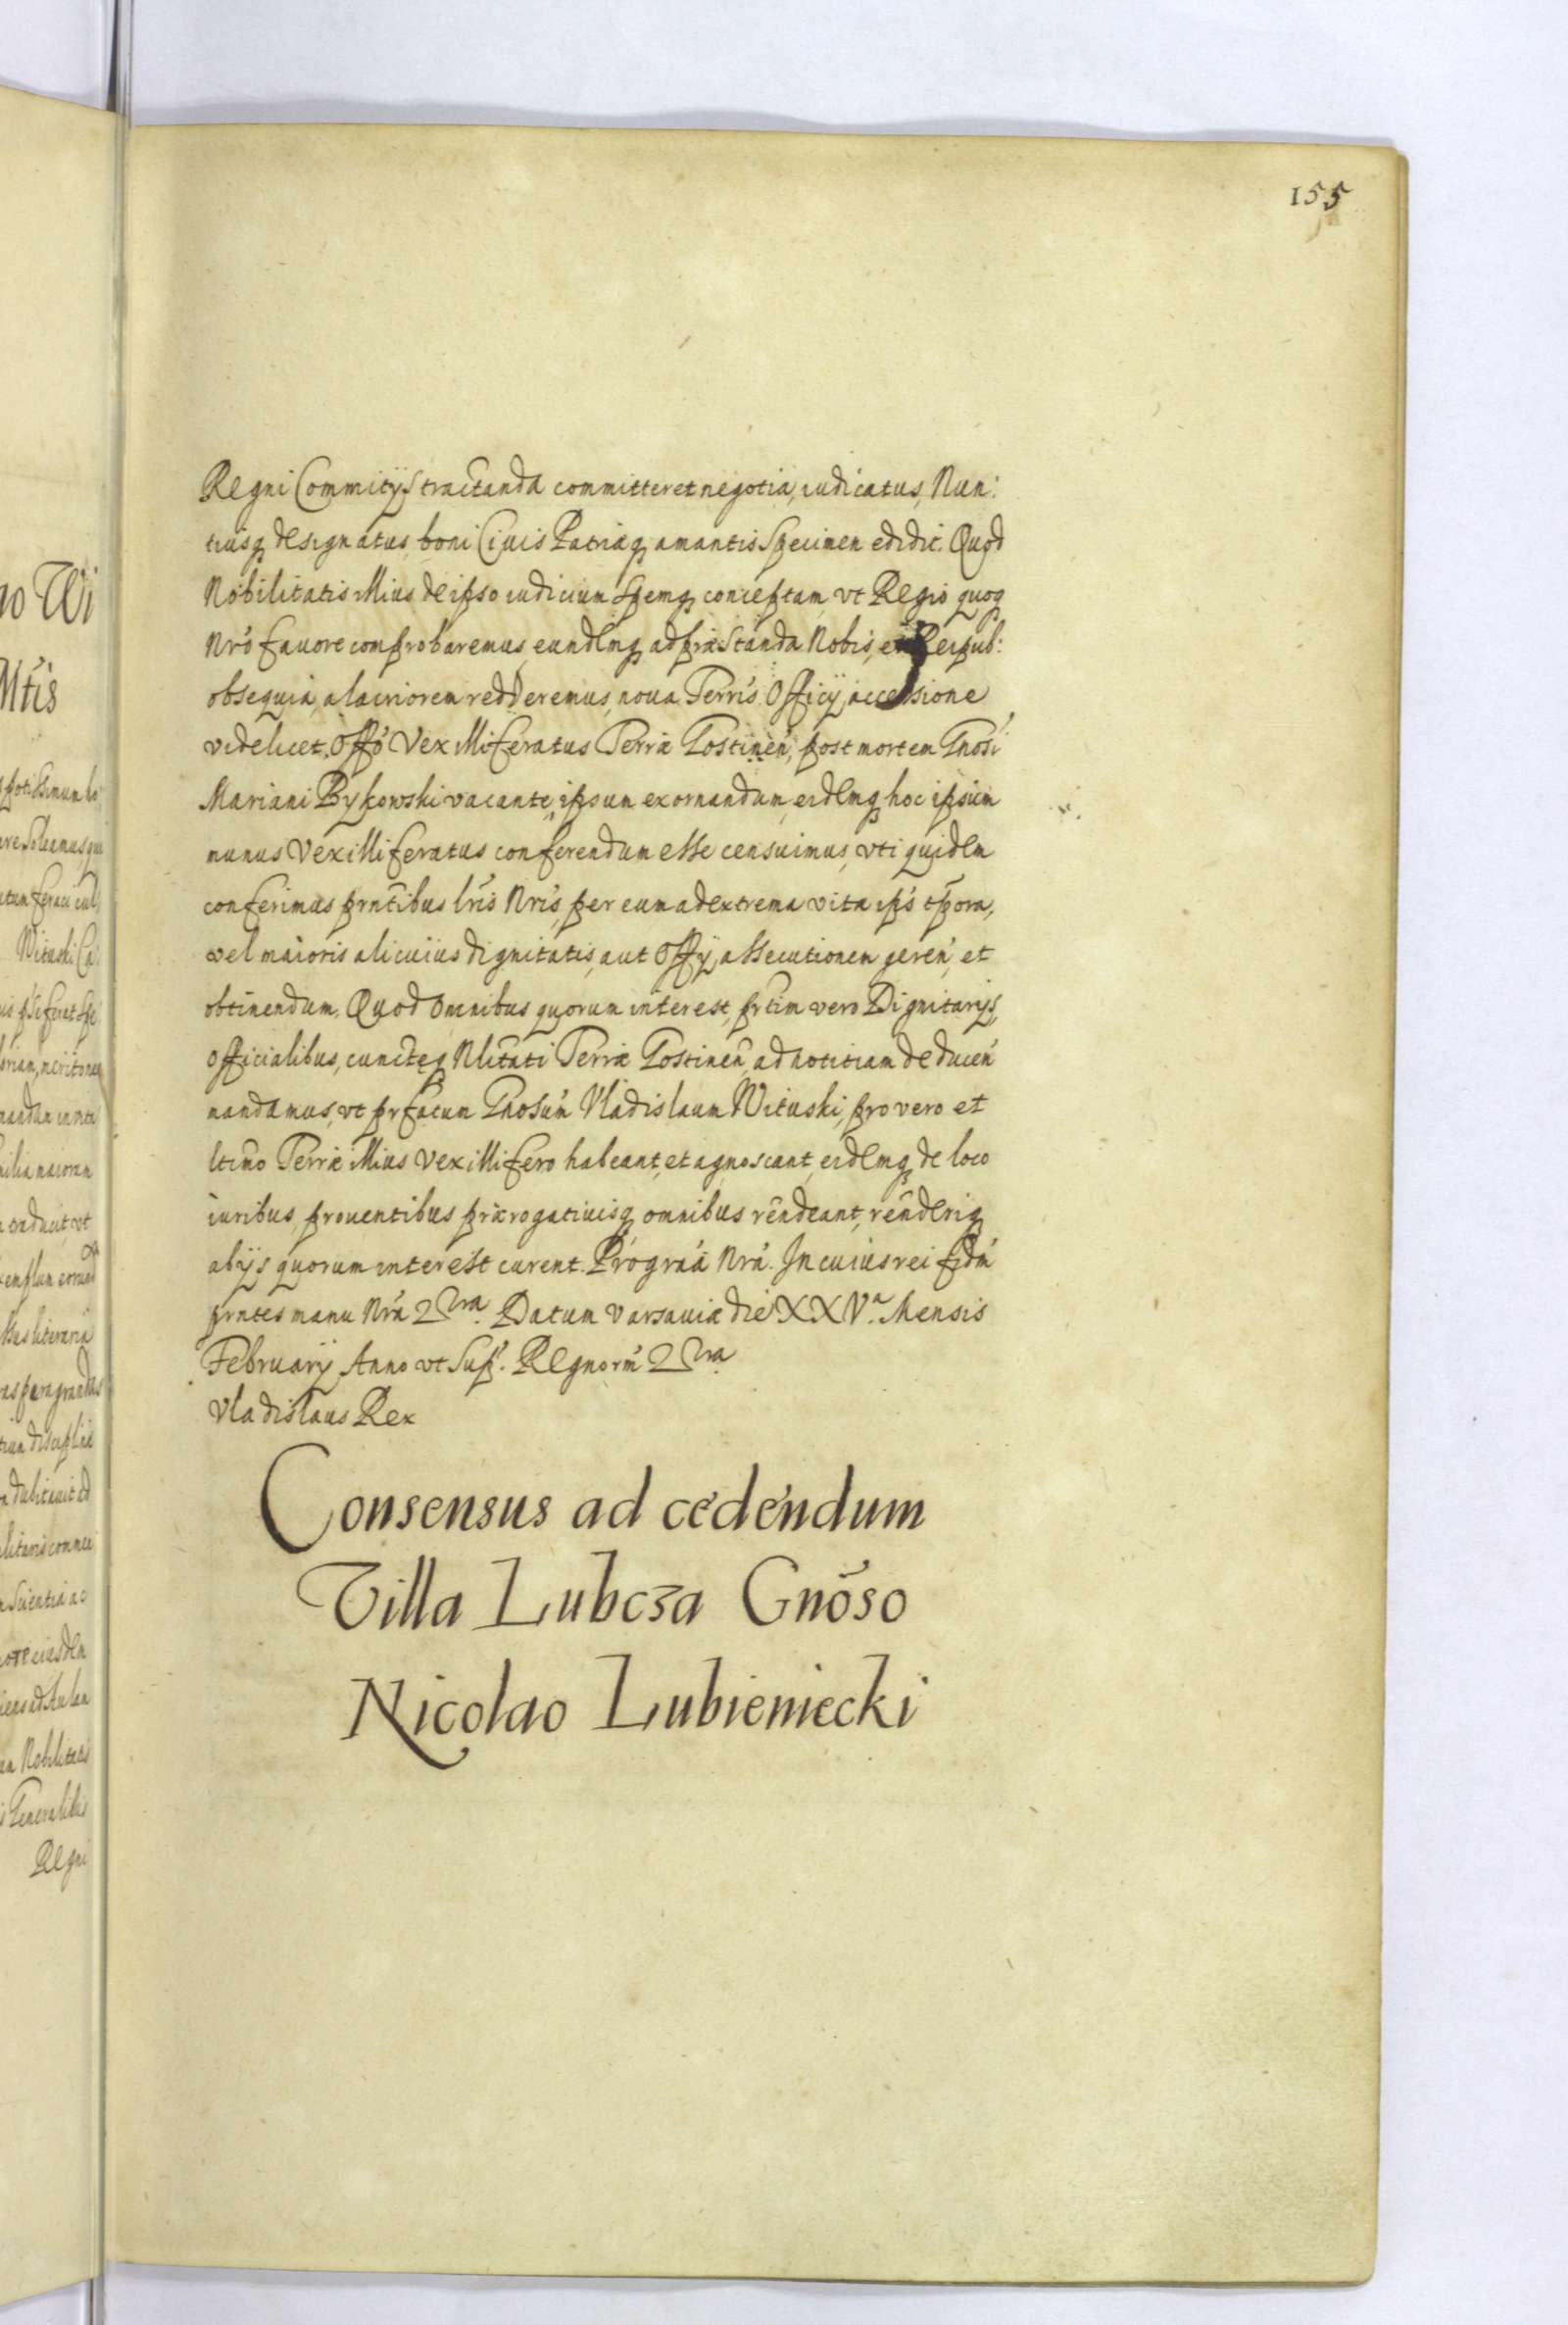 155
Regni Commitijs tractanda committeret negotia, iudicatus, Nun:
tiusq designatus, boni Ciuis Patriæq amantis specimen edidit. Quod
Nobilitatis illius de ipso iudicium spemq conceptam, vt Regio quoq
Nrõ fauore comprobaremus, eundemq ad præstanda Nobis, et Reipub:
obsequia, alacriorem redderemus, noua Terris Officij accessione
videlicet, Offõ Vexilliferatus Terræ Gostineñ, post mortem Gnosi
Mariani Bykowski vacante, ipsum exornandum, eidemq hoc ipsum
munus Vexilliferatus conferendum esse censuimus, vti quidem
conferimus prñtibus lrís Nrís, per eum ad extrema vitæ ips tpora,
vel maioris alicuius dignitatis, aut Offij, assecutionem gereñ, et
obtinendum. Quod omnibus quorum interest, prtim vero Dignitarijs,
Officialibus, cunctæq Nlitati Terræ Gostineñ, ad notitiam deduceñ
mandamus, vt prfatum Gnosum Vladislaum Wituski, pro vero et
ltimo Terræ illius Vexillifero habeant, et agnoscant, eidemq de loco
iuribus, prouentibus prærogatiuisq omnibus rendeant, renderiq
ab ijs quorum interest curent. Pro grãa Nrã. In cuius rei fidm
prntes manu Nrã 2 Datum Varsauiæ die XXVª. Mensis
Februarij Anno vt Sup. Regnorm 2
Vladislaus Rex
Consensus ad cedendum
Villa Lubcza Gnõso
Nicolao Lubieniecki